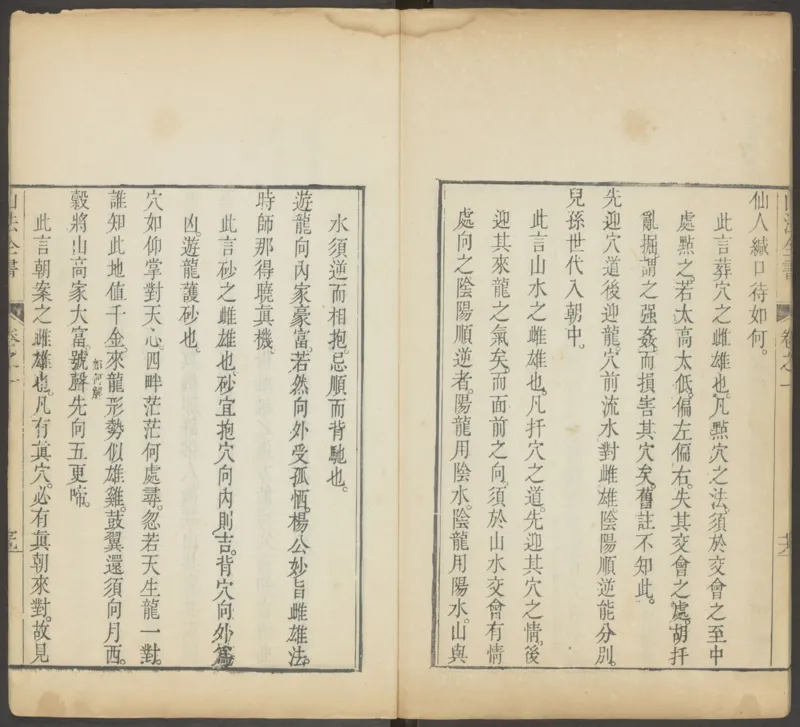 仙人緘口待如何。
此言葬穴之雌雄也。凡點穴之法。須於交會之至中
處點之。若太高太低。偏左偏右。失其交會之處。胡扦
亂掘。謂之强姦。而損害其穴矣。舊註不知此。
先迎穴道後迎龍。穴前流水對雌雄。陰陽順逆能分別。
兒孫世代入朝中。
此言山水之雌雄也。凡扦穴之道。先迎其穴之情。後
迎其來龍之氣矣。而面前之向。須於山水交會有情
處向之。陰陽順逆者。陽龍用陰水。陰龍用陽水。山與
山法全書
卷之一
水須逆而相抱。忌順而背馳也。
遊龍向內家豪富。若然向外受孤恓。楊公妙旨雌雄法。
時師那得曉眞機。
此言砂之雌雄也。砂宜抱穴向內則吉。背穴向外爲
凶。遊龍護砂也。
穴如仰掌對天心。四畔茫茫何處尋。忽若天生龍一對。
誰知此地值千金。來龍形勢似雄雞。鼓翼還須向月西。
穀將山高家大富。號聲先向五更啼。
此言朝案之雌雄也。凡有眞穴。必有眞朝來對。故見
山法全書
卷之一